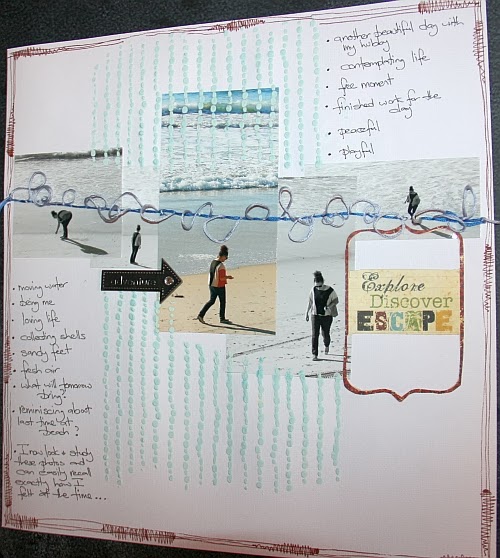 • another beautiful day with
my hubby
• contemplating life
• fee moment
• finished work for the
day
• peaceful
• playful
Explore
Discover
ESCAPE
• moving water
• being me
• loving life
• collecting shells
• sandy feet
• fresh air
• what will tomorrow
bring?
• reminiscing about
last time at
beach?
• I now look & study
these photos and
can easily recall
exactly how I
felt at the time...